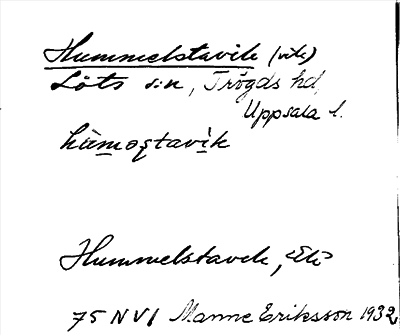 Hummelstavik (vik)
Löts s:n, Trögds hd,
Uppsala l.
hùmosta vìk
Hummelstavik, Ek
75 NV1 Manne Eriksson 1932